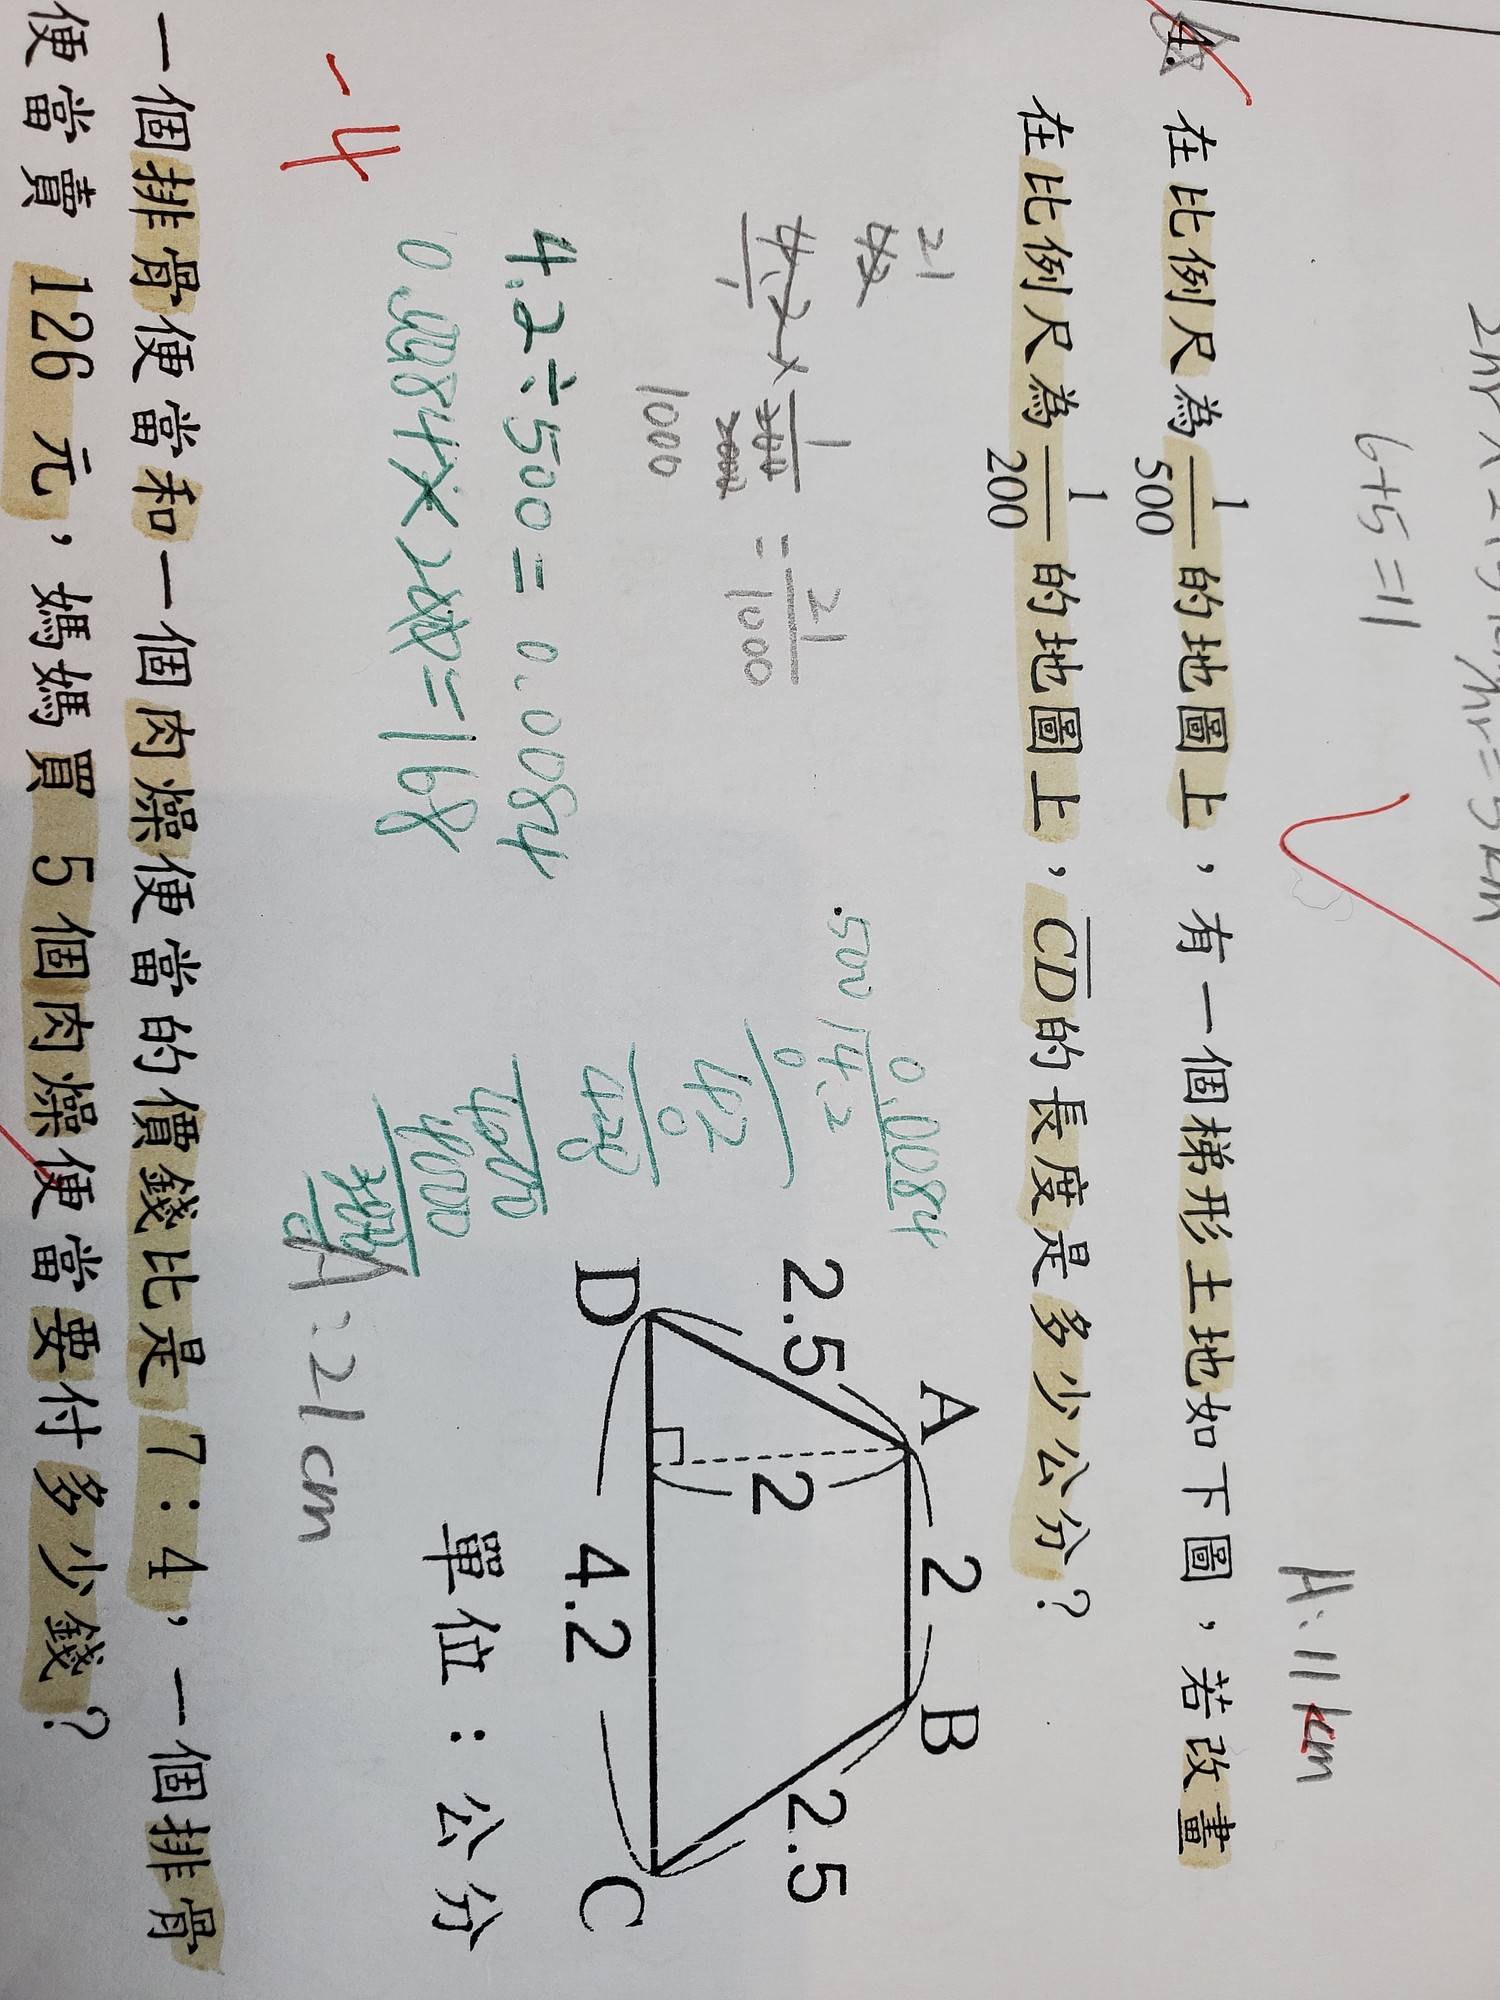 2hr
hr=5km
6+5=11
A:11km
4. 在比例尺為 1/500 的地圖上,有一個梯形土地如下圖,若改畫
在比例尺為 1/200 的地圖上,CD的長度是多少公分?
21
42
4.2/1 × 1/500 = 21/1000
1000
4.2÷500=0.0084
0.0084×200=168
0.0084
500 4.2
0
42
0
420
4200
4000
A:21cm
-4
A
2
B
2.5
2
2.5
D
4.2
C
單位:公分
一個排骨便當和一個肉燥便當的價錢比是 7:4,一個排骨
便當賣 126 元,媽媽買 5 個肉燥便當要付多少錢?